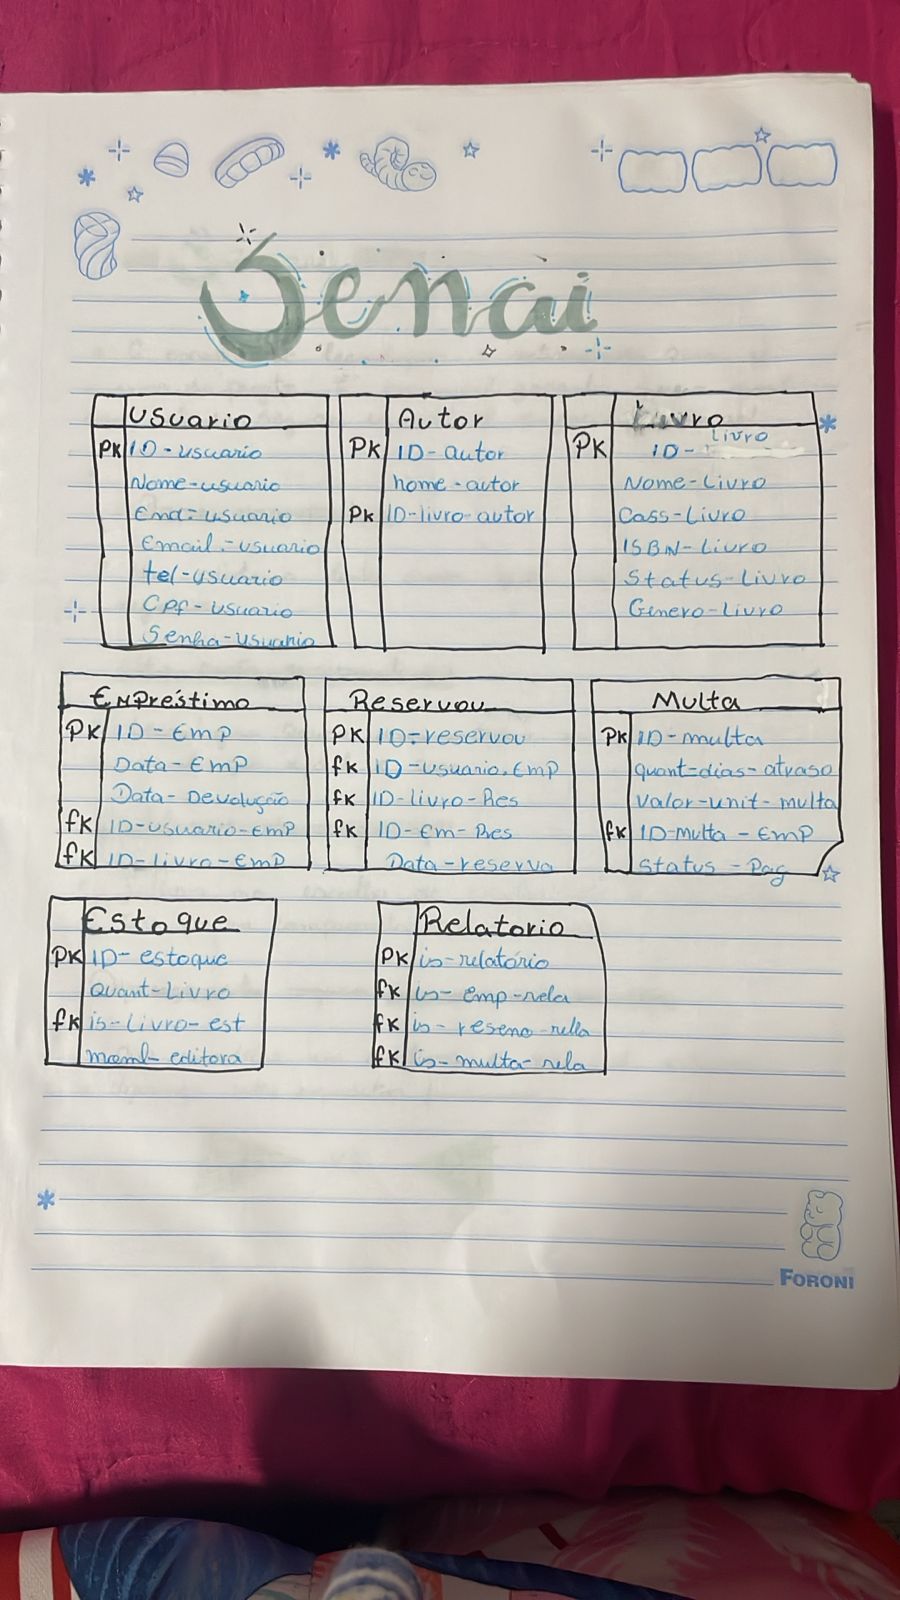 Senai
Usuario
PK ID-usuario
Nome-usuario
End-usuario
Email-usuario
tel-usuario
Cpf-usuario
Senha-usuario
Autor
PK ID-autor
nome-autor
PK ID-livro-autor
Livro
PK ID-Livro
Nome-Livro
Cass-Livro
ISBN-Livro
Status-Livro
Genero-Livro
Empréstimo
PK ID-Emp
Data-Emp
Data-Devolução
fK ID-usuario-Emp
fK ID-livro-Emp
Reservou
PK ID-reservou
fK ID-usuario.Emp
fK ID-livro-Res
fK ID-Em-Res
Data-reserva
Multa
PK ID-multa
quant-dias-atraso
Valor-unit-multa
fK ID-multa-Emp
Status-Pag
Estoque
PK ID-estoque
Quant-Livro
fK is-Livro-est
editora
Relatorio
PK is-relatório
fK is-emp-rela
fK is-reseno-rella
fK is-multa-rela
FORONI